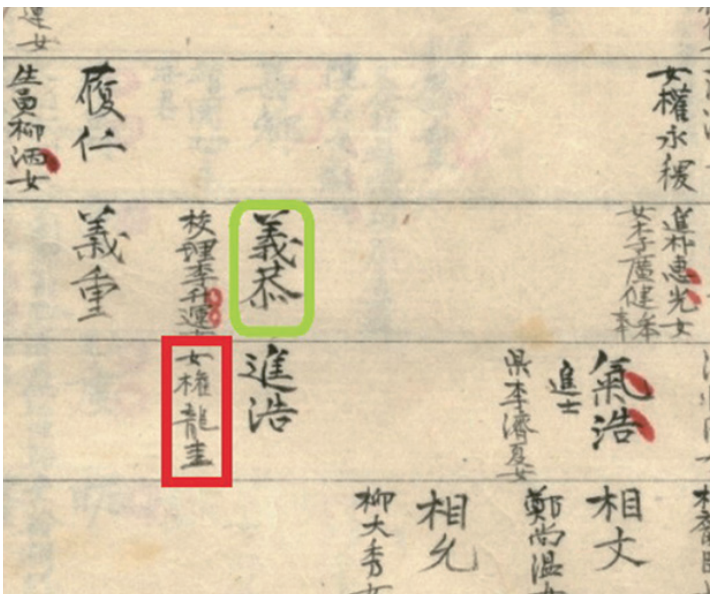 女權永稷
履仁
生員柳洒女
進朴惠光女
女李廣健
義恭
校理李升運女
義重
氣浩
進士
県李濟夏女
進浩
女權龍圭
相文
鄭尚溫女
相允
柳大秀女